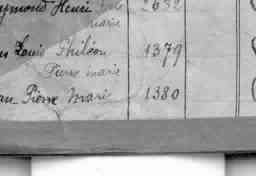 Henri 2632
marie
Louis Philéon 1379
Pierre marie
Pierre Marie 1380